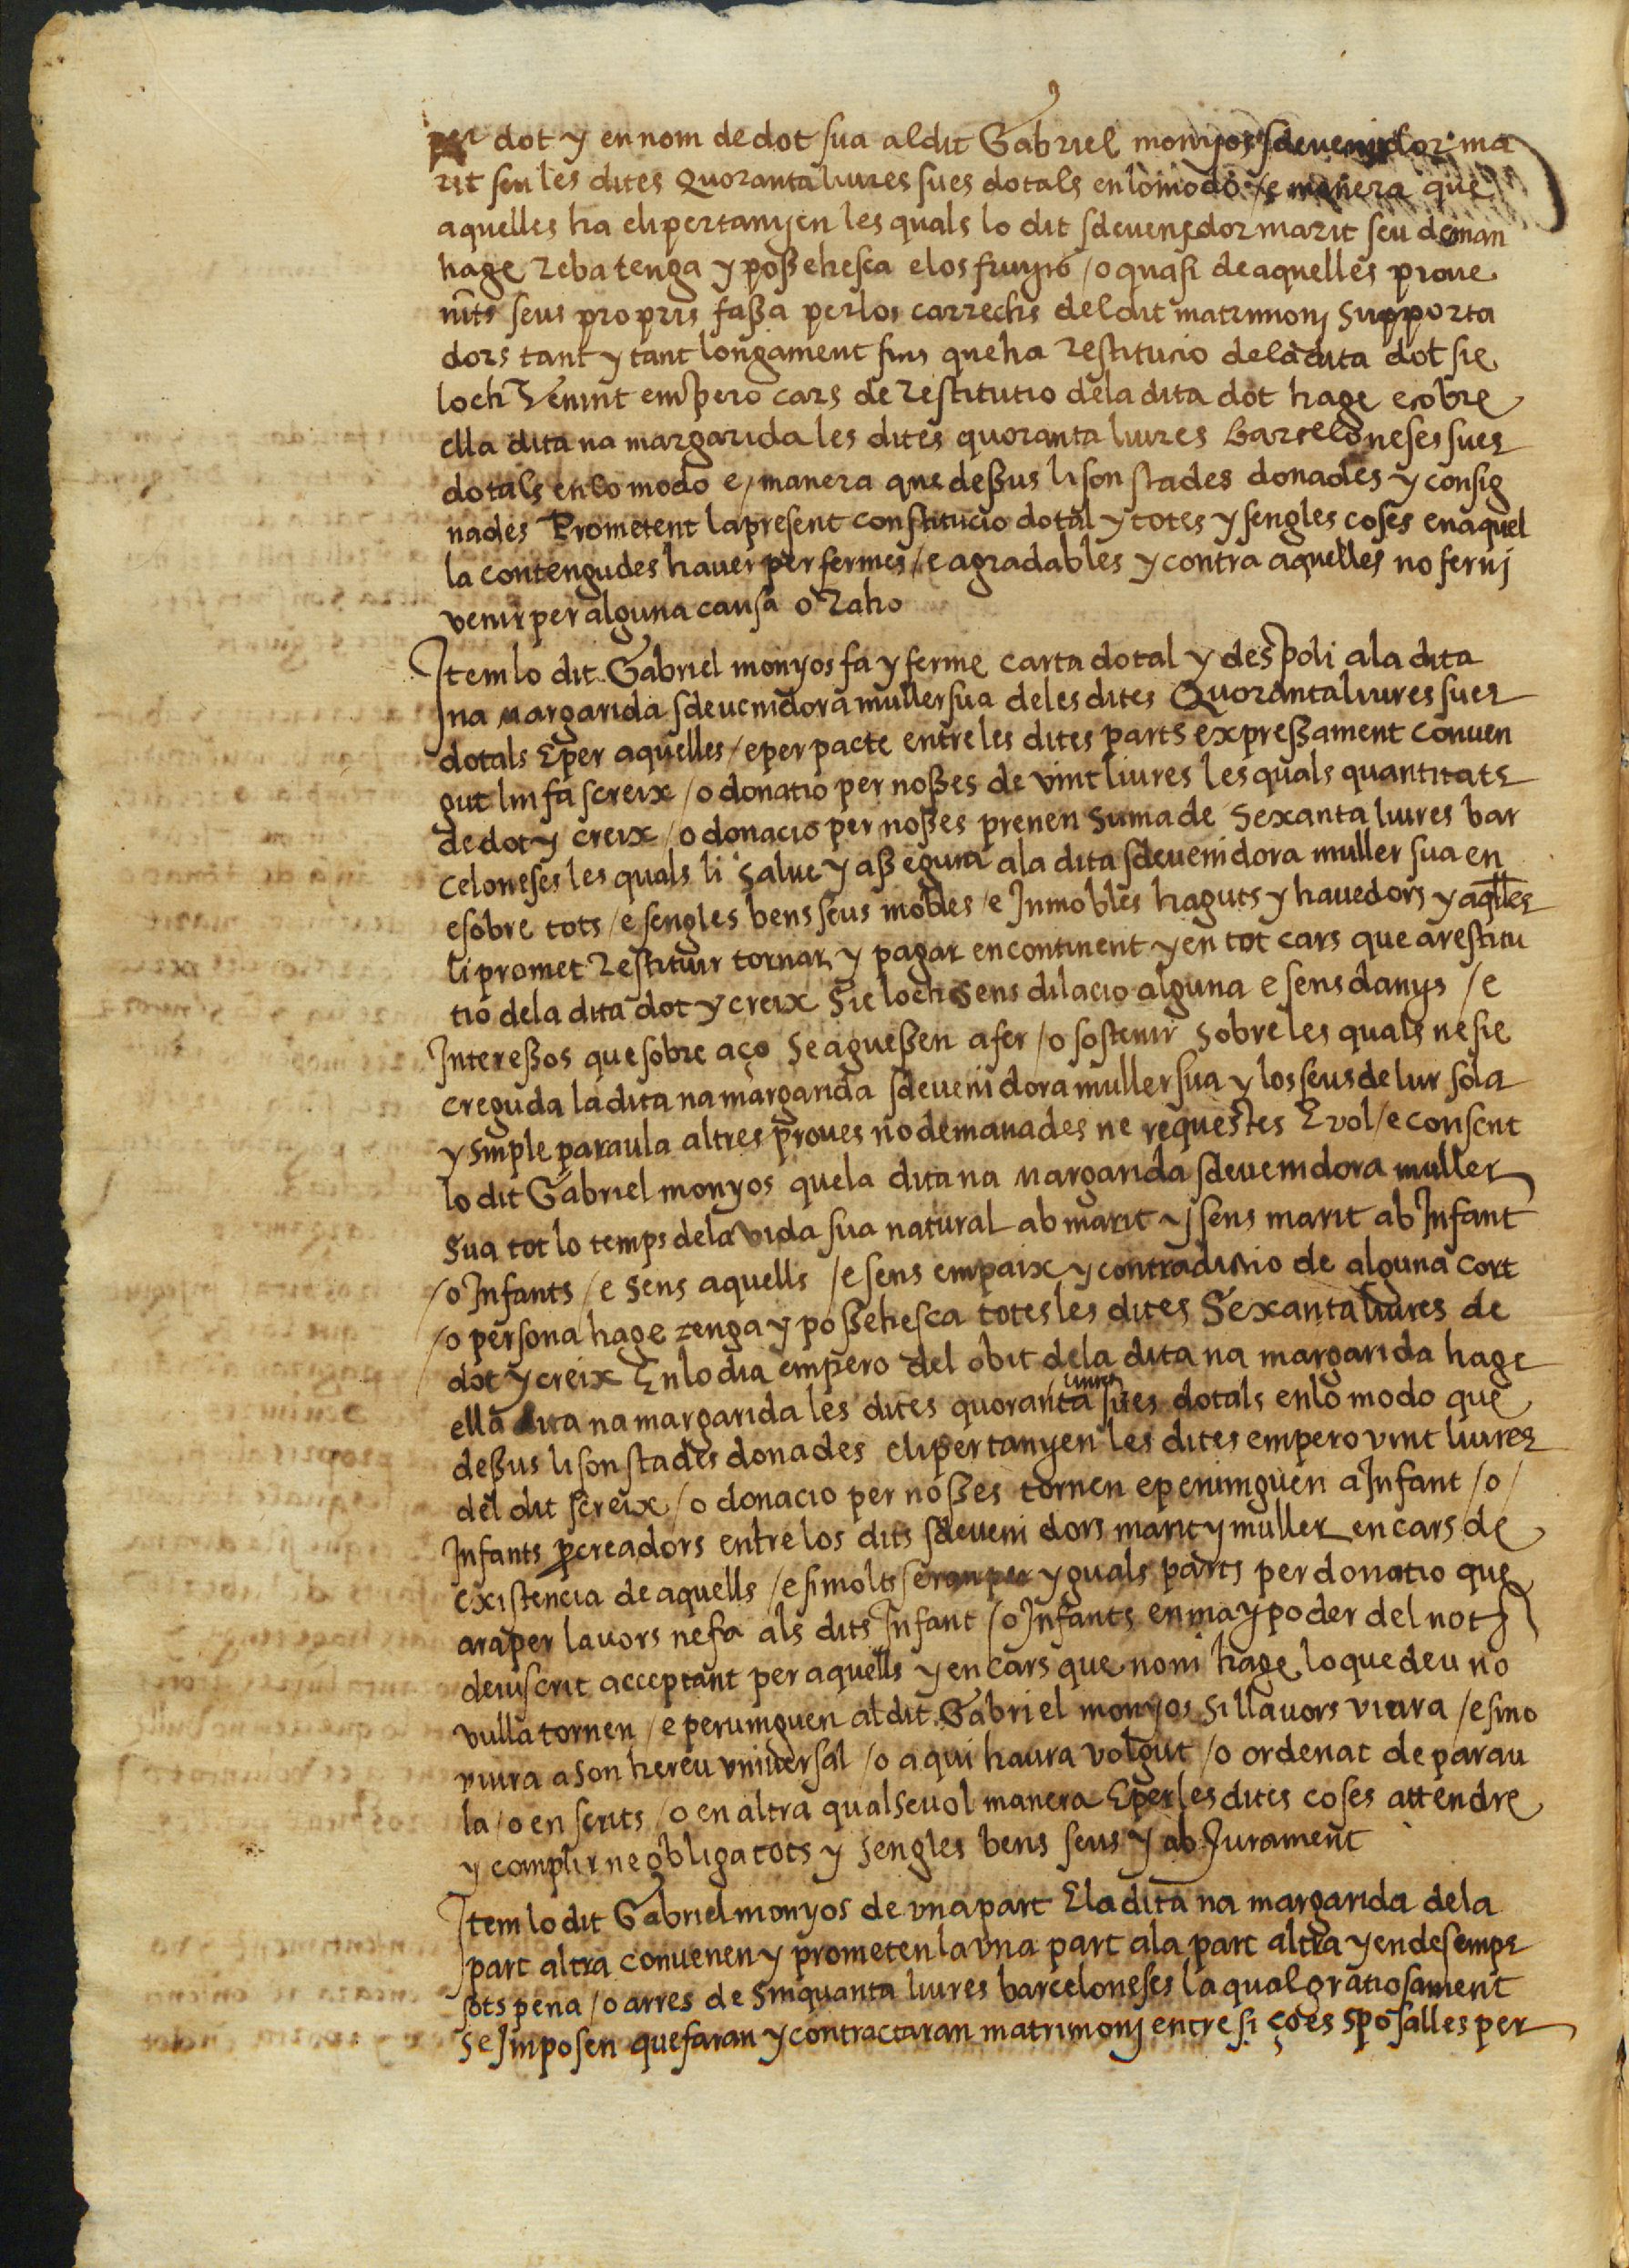 per dot y en nom de dot sua al dit Gabriel monyos sdevenidor ma
rit seu les dites Quoranta liures sues dotals en lo modo /e manera que
aquelles ha eli pertanyen les quals lo dit sdevenidor marit seu deman
hage Reba tenga y possehesca e los fruyts /o quasi de aquelles prove
nints seus propris fassa per los carrechs del dit matrimonj Supporta
dors tant y tant longament fins que ha Restitucio dela dita dot sie
loch Venint empero cars de Restitutio dela dita dot hage e cobre
ella dita na margarida les dites quoranta liures Barceloneses sues
dotals en lo modo e, manera que dessus li son stades donades y consig
nades Prometent la present constitucio dotal y totes y sengles coses en aquel
la contengudes haver per fermes /e agradables y contra aquelles no fer nj
venir per alguna causa o Raho
Item lo dit Gabriel monyos fa y ferme carta dotal y despoli ala dita
na margarida sdevenidora muller sua deles dites Quoranta liures sues
dotals E per aquelles /e per pacte entre les dites parts expressament conven
gut lin fa screix /o donatio per nosses de vint liures les quals quantitats
de dot y creix /o donacio per nosses prenen Suma de Sexanta liures bar
celoneses les quals li Salve y assegura ala dita sdevenidora muller sua en
e sobre tots /e sengles bens seus mobles /e Inmobles haguts y havedors y aqlles
li promet Restituir tornar y pagar encontinent y en tot cars que a restitu
tio dela dita dot y creix Sie loch Sens dilacio alguna e sens danys /e
Interessos que sobre aço Se aguessen a fer /o sostenir Sobre les quals ne sie
creguda la dita na margarida sdevenidora muller sua y los seus de lur sola
y simple paraula altres proves no demanades ne requestes E vol /e consent
lo dit Gabriel monyos que la dita na margarida sdevenidora muller
Sua tot lo temps dela vida sua natural ab marit y sens marit ab Infant
/o Infants /e Sens aquells /e sens empaix y contradictio de alguna cort
/o persona hage tenga y possehesca totes les dites Sexanta liures de
dot y creix En lo dia empero del obit dela dita na margarida hage
ella dita na margarida les dites quoranta liures sues dotals en lo modo que
dessus li son stades donades e li pertanyen les dites empero vint liures
del dit screix /o donacio per nosses tornen e pervinguen a Infant /o/
Infants pcreadors entre los dits sdevenidors marit y muller en cars de
existencia de aquells /e si molts seran per yguals parts per donatio que
ara per lavors ne fa als dits Infant /o Infants en ma y poder del not
deiuscrit acceptant per aquells y en cars que noni hage lo que deu no
vulla tornen /e pervinguen al dit Gabriel monyos Si llavors viura /e si no
viura a Son hereu universal /o a qui haura volgut /o ordenat de parau
la /o en scrits /o en altra qualsevol manera E per les dites coses attendre
y complir ne obliga tots y sengles bens seus y ab Jurament
Item lo dit Gabriel monyos de una part E la dita na margarida dela
part altra convenen y prometen la una part ala part altra y endesemps
sots pena /o arres de Sinquanta liures barceloneses la qual gratiosament
Se Imposen que faran y contractaran matrimonj entre si ço es Sposalles per